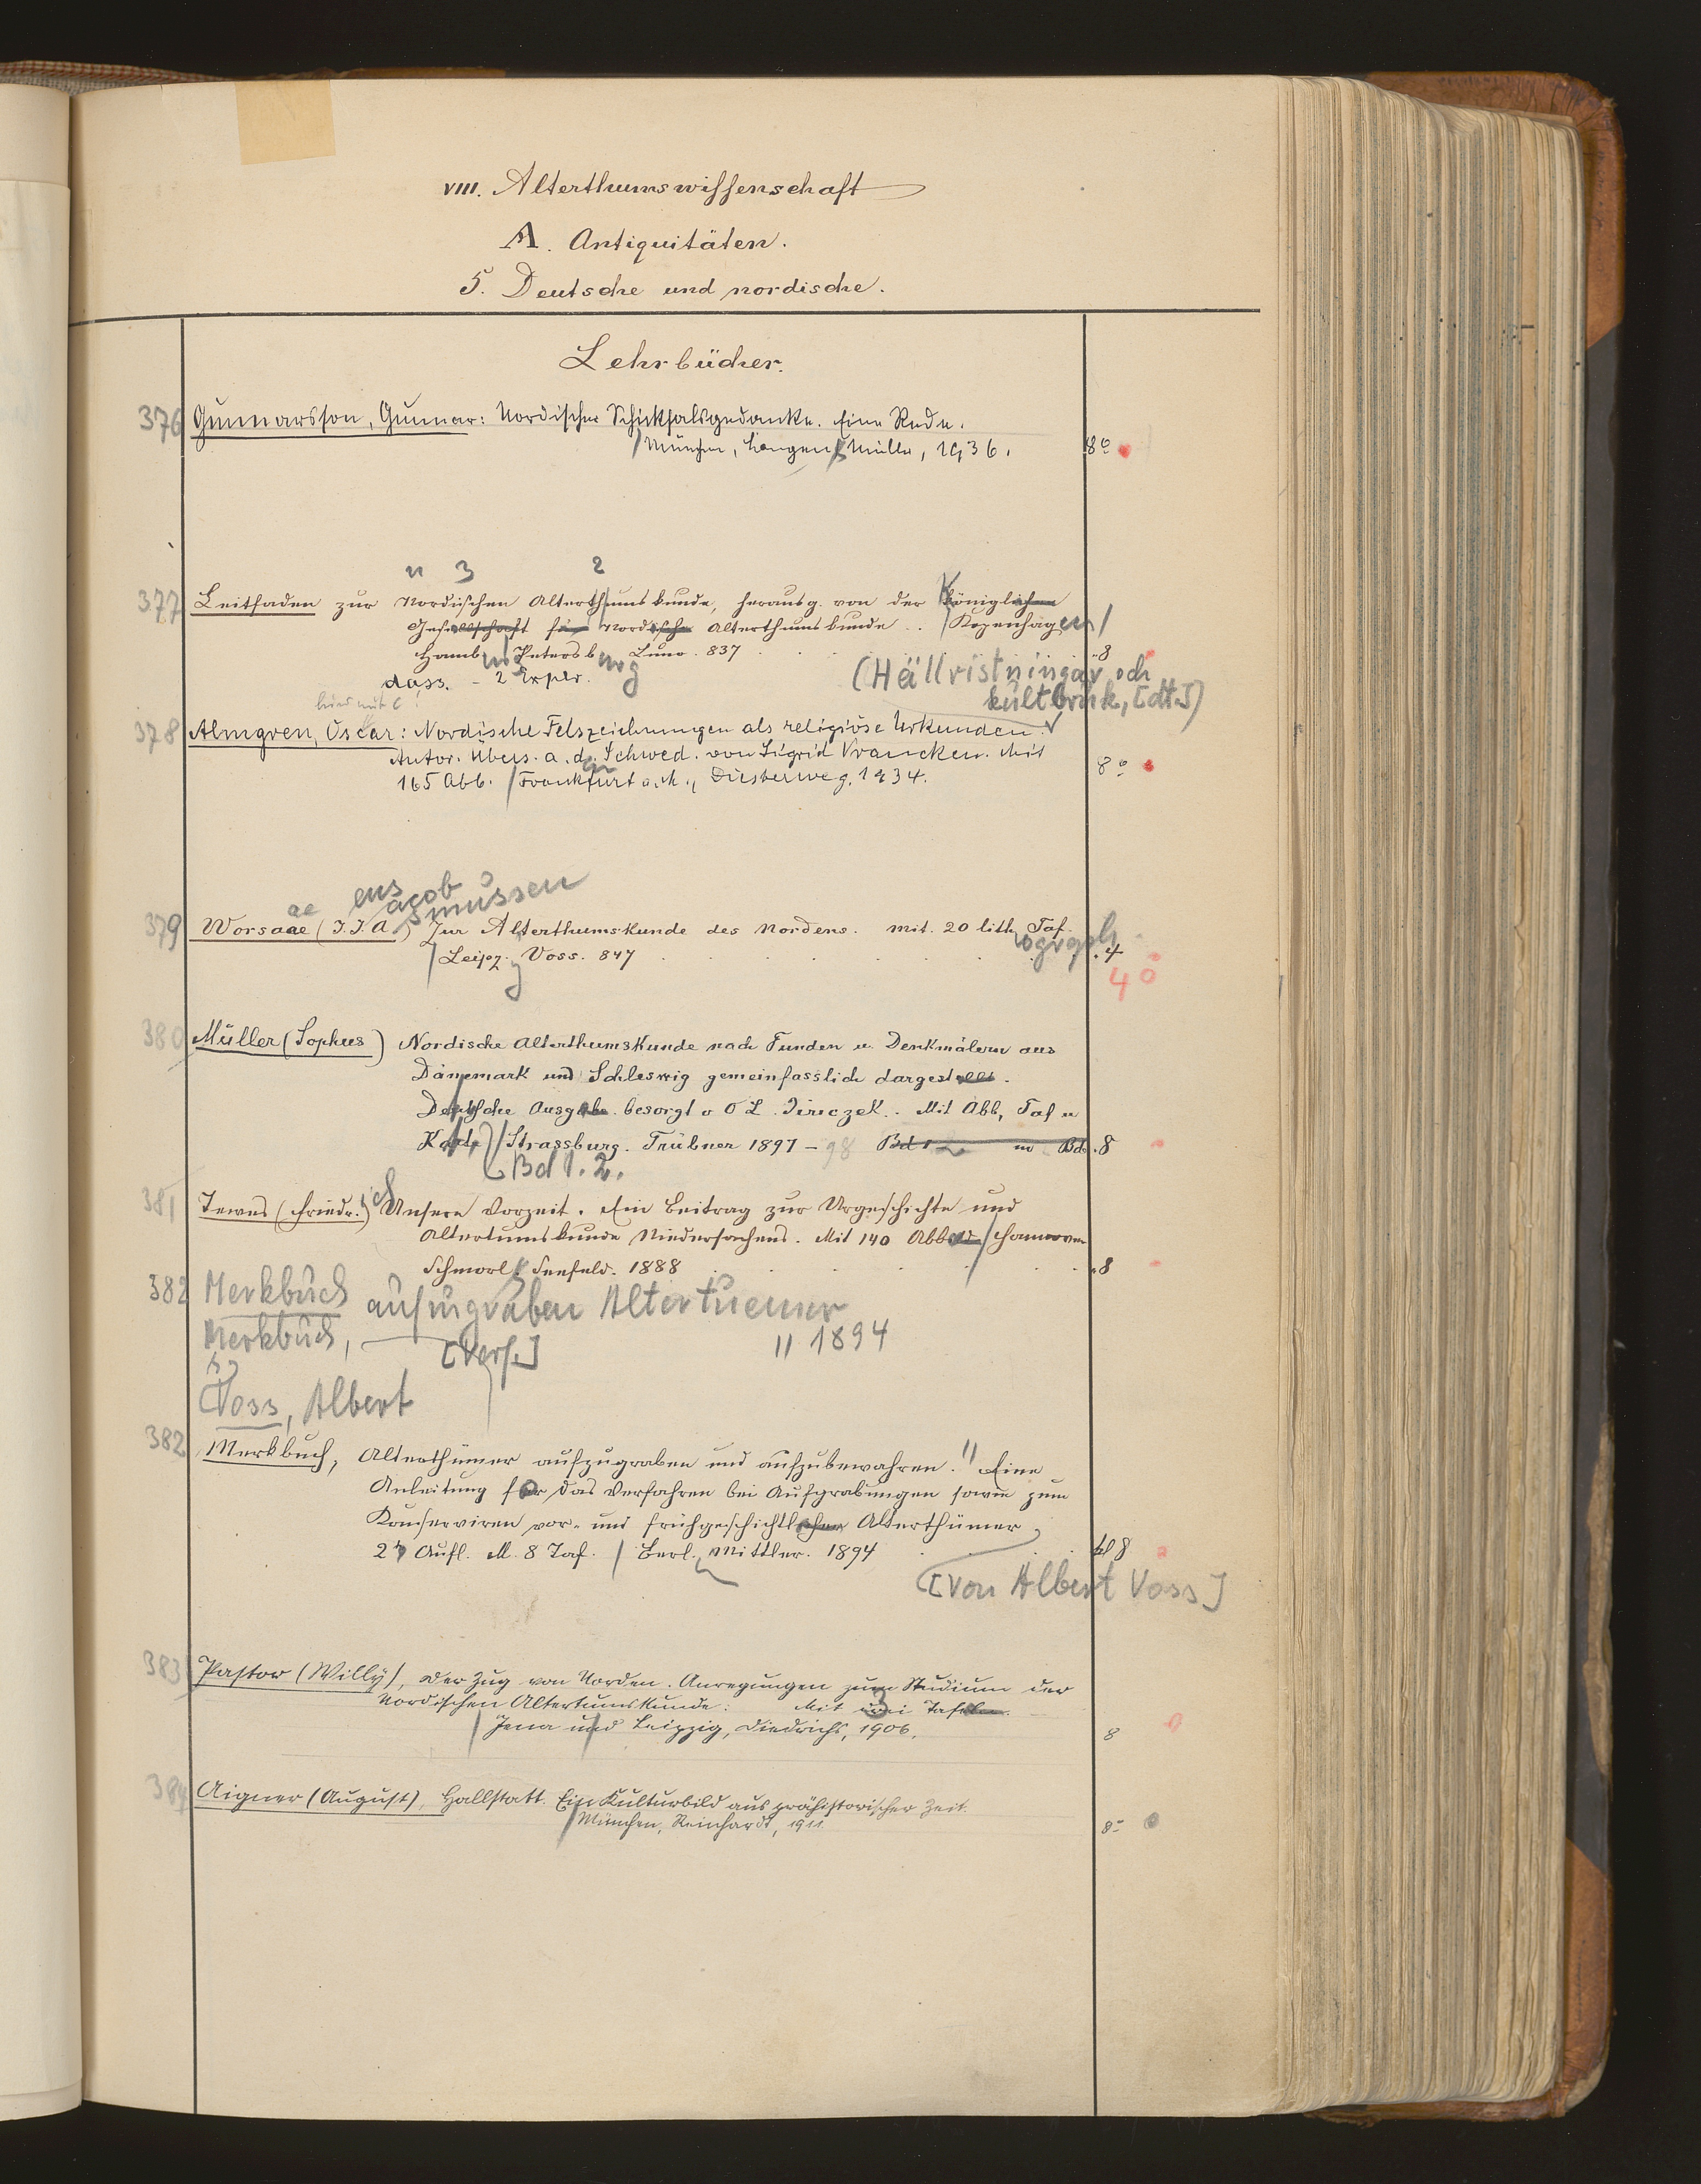 VIII. Alterthumswissenschaft
A. Antiquitäten.
5. Deutsche und nordische.
Lehrbücher.
376 Gunnarsson, Gunnar: Nordischer Schicksalsgedanke. Eine Rede.
München, Langen/Müller, 1936. 8°
n 3 2
377 Leitfaden zur Nordischen Alterthumskunde, herausg. von der Königlichen
Gesellschaft für Nordische Alterthumskunde .. Kopenhagen
Hamb Petersburg Luno. 837 8
dass. - 2 Explr.
(Hällristningar och
kultbruk, [dt.])
hier mit C
378 Almgren, Oscar: Nordische Felszeichnungen als religiöse Urkunden.
Autor. Übers. a. d. Schwed. von Sigrid Vrancken. Mit
165 Abb. Frankfurt a. M., Diesterweg, 1934. 8°
ens acob smussen
ae
379 Worsaae (J. J. A.) Zur Alterthumskunde des Nordens. mit. 20 lithograph Taf.
Leipz. Voss. 847 4
4°
380 Müller (Sophus) Nordische Alterthumskunde nach Funden u. Denkmälern aus
Dänemark und Schleswig gemeinfasslich dargestellt.
Deutsche Ausgabe. besorgt v O L. Jiriczek. Mit Abb, Taf u
Karte Strassburg. Trübner 1897 - 98 Bd 1 2 in Bd. 8
Bd 1. 2.
381 Tewes (Friedr.) Unsere Vorzeit. Ein Beitrag zur Urgeschichte und
Altertumskunde Niedersachsens. Mit 140 Abbild Hannover
Schmorl & Seefeld. 1888 8
382 Merkbuch aufzugraben Altertuemer
Merkbuch, [Verf.] 1894
Voss, Albert
382 Merkbuch, Alterthümer aufzugraben und aufzubewahren. Eine
Anleitung für das Verfahren bei Aufgrabungen sowie zum
Konserviren vor- und frühgeschichtlicher Alterthümer
2te Aufl. M. 8 Taf. Berl. Mittler. 1894 kl 8
[von Albert Voss]
383 Pastor (Willy), Der Zug von Norden. Anregungen zum Studium der
nordischen Altertumskunde: Mit drei 3 Tafeln.
Jena und Leipzig, Diedrichs, 1906. 8
384 Aigner (August), Hallstatt. Ein Kulturbild aus prähistorischer Zeit.
München, Reinhardt, 1911. 8°